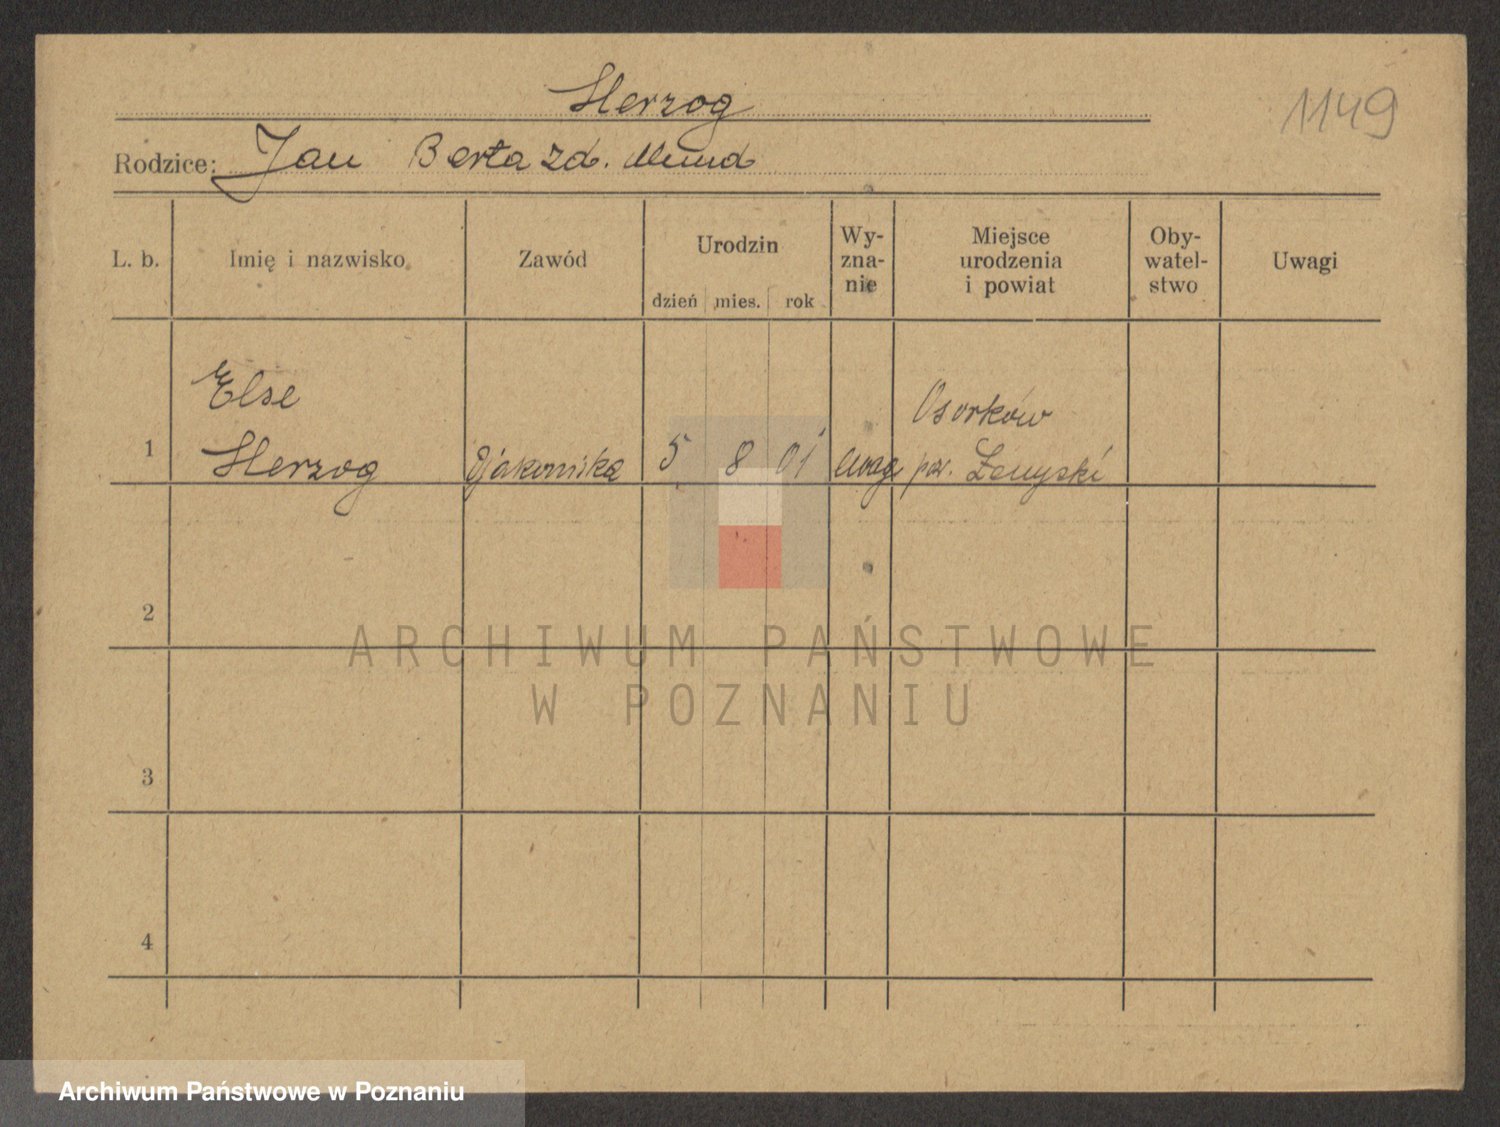 Herzog
1149
Rodzice: Jan Berta zd. Mund
L. b. Imię i nazwisko Zawód Urodzin dzień mies. rok Wy- zna- nie Miejsce urodzenia i powiat Oby- watel- stwo Uwagi
Else
Osorków
1 Herzog Djakoniska 5 8 01 ewag pow.
2
ARCHIWUM PAŃSTWOWE
W POZNANIU
3
4
Archiwum Państwowe w Poznaniu